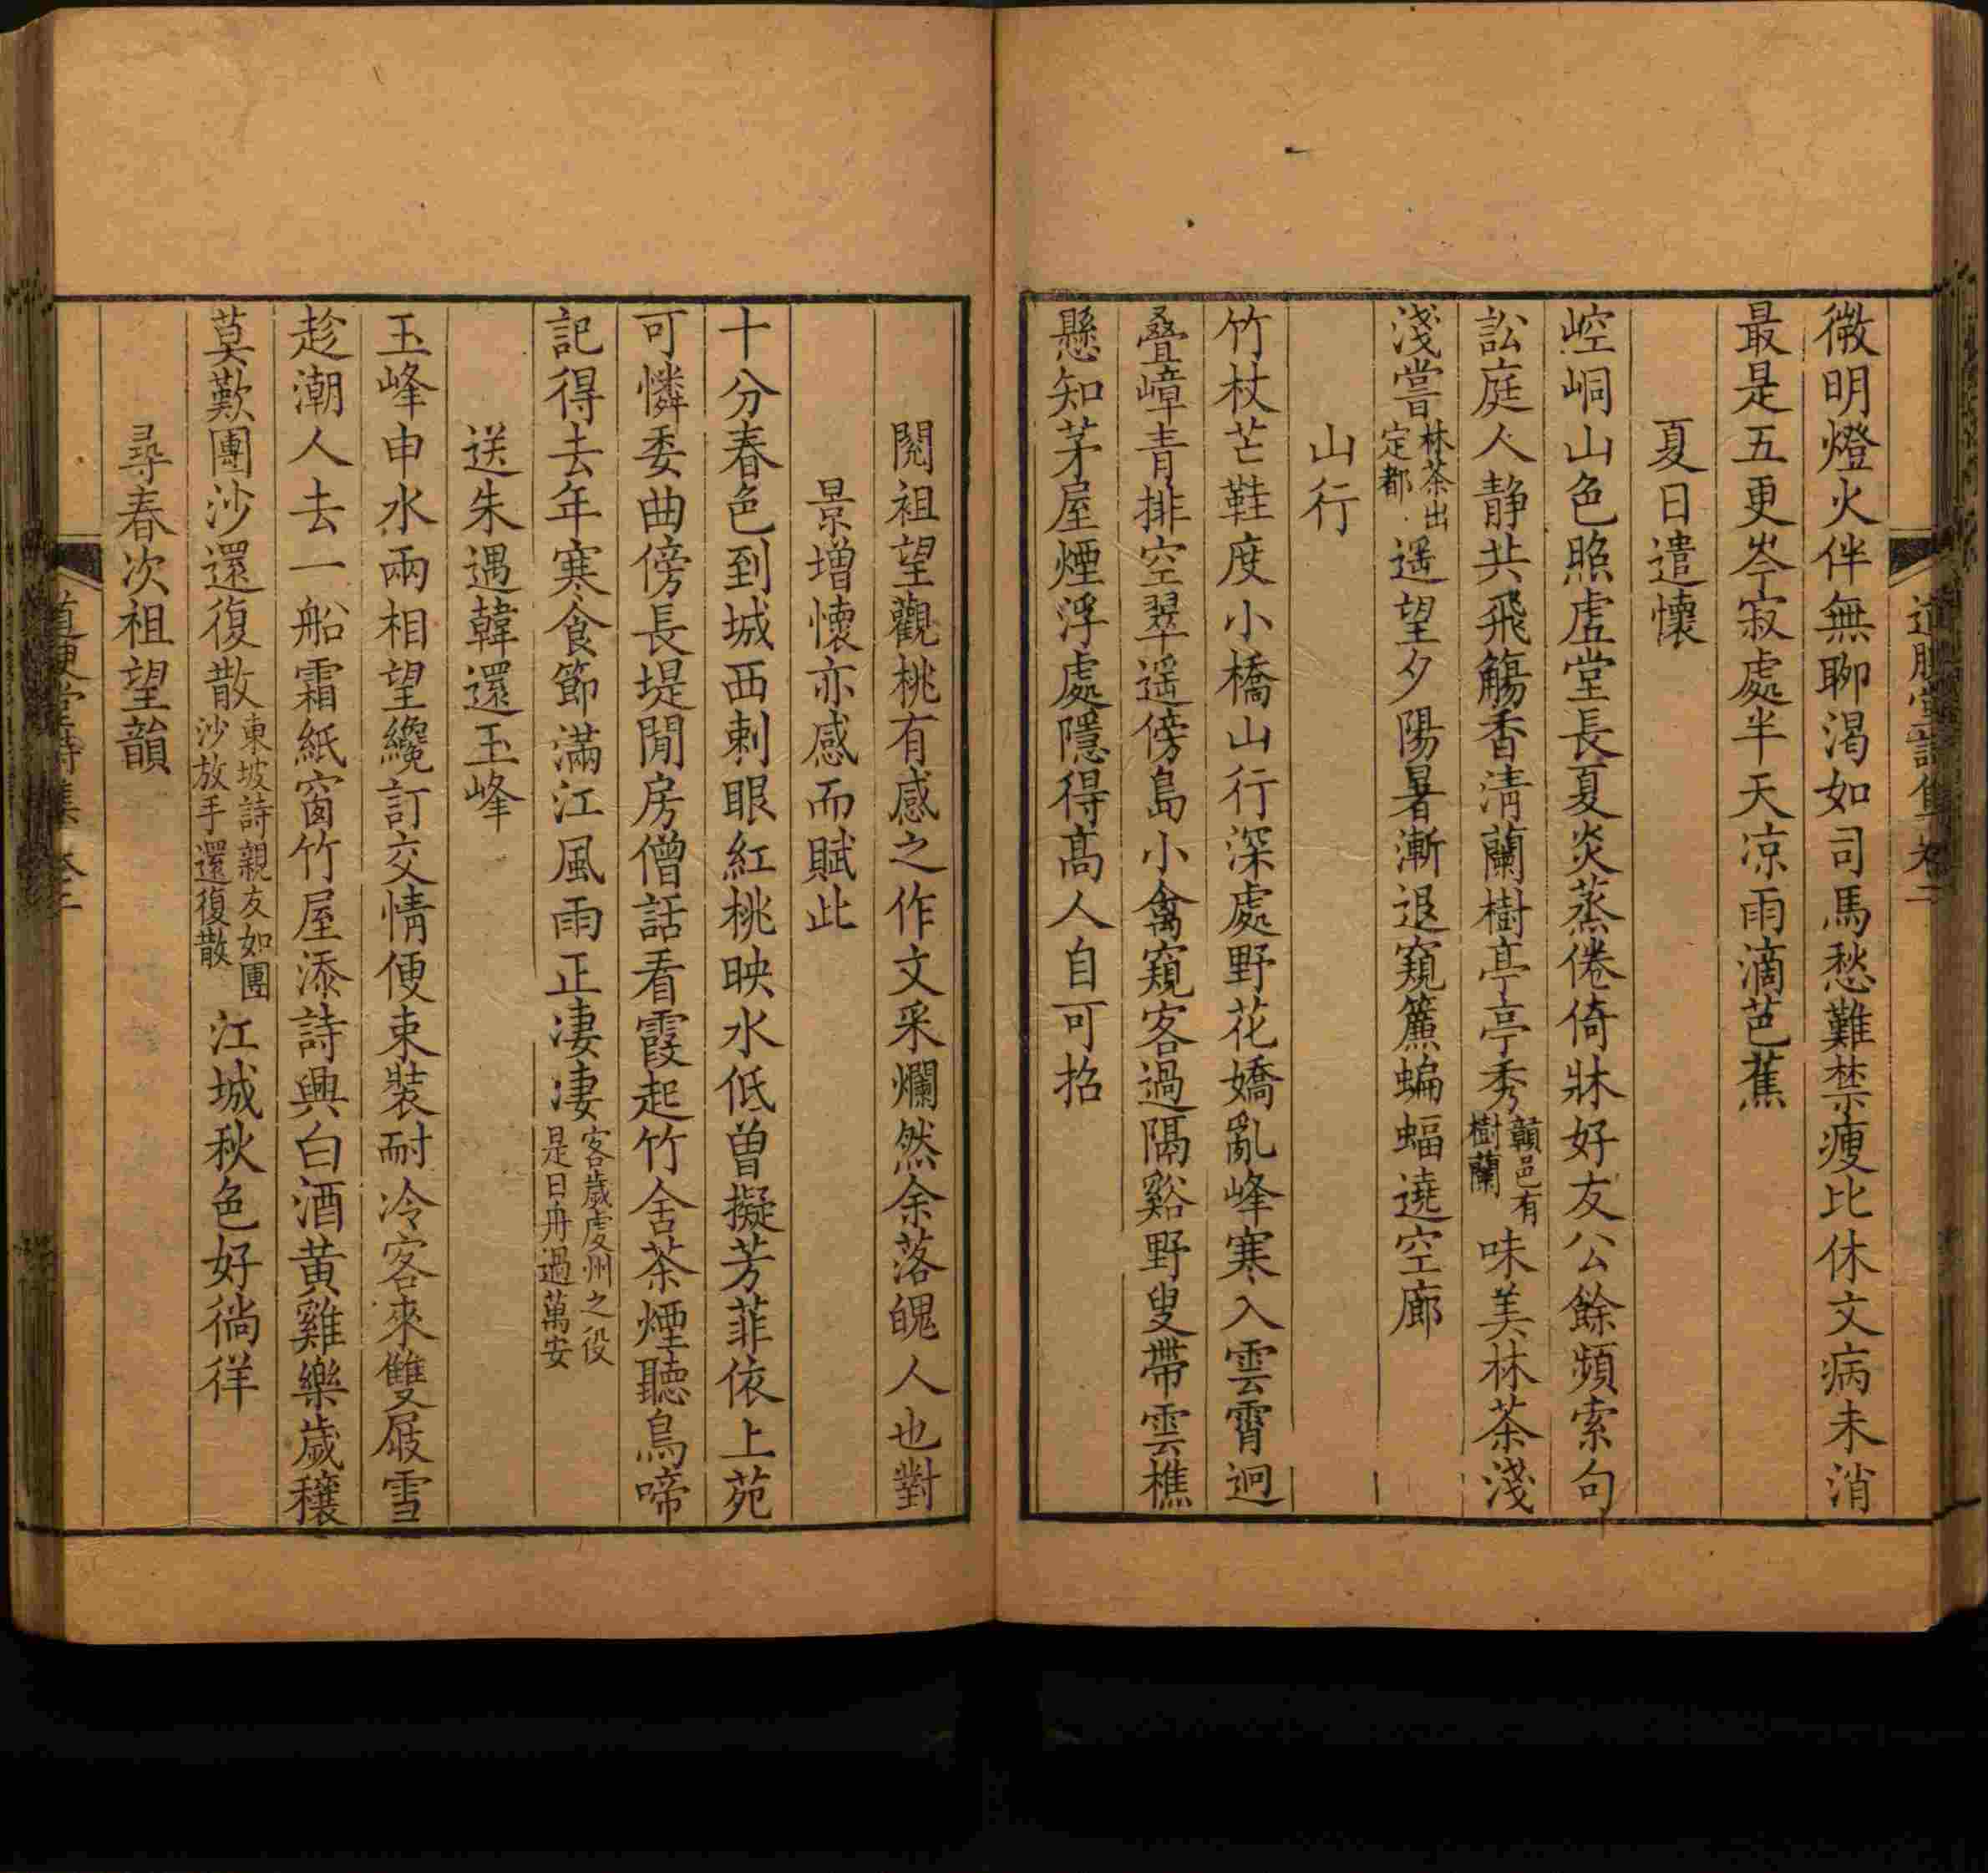 微明燈火伴無聊渴如司馬愁難禁瘦比休文病未消
最是五更岑寂處半天凉雨滴芭蕉
夏日遣懷
崆峒山色照虛堂長夏炎蒸倦倚牀好友公餘頻索句
訟庭人静共飛觴香清蘭樹亭亭秀贛邑有樹蘭味美林茶淺
淺嘗林茶出定都遥望夕陽暑漸退窺簾蝙蝠遶空廊
山行
竹杖芒鞋度小橋山行深處野花嬌亂峰寒入雲霄迥
叠嶂青排空翠遥傍島小禽窺客過隔谿野叟帶雲樵
懸知茅屋煙浮處隱得高人自可招
閱祖望觀桃有感之作文采爛然余落魄人也對
景增懷亦感而賦此
十分春色到城西刺眼紅桃映水低曾擬芳菲依上苑
可憐委曲傍長堤閒房僧話看霞起竹舍茶煙聽鳥啼
記得去年寒食節滿江風雨正凄凄客歲虔州之役是日舟過萬安
送朱遇韓還玉峰
玉峰申水兩相望纔訂交情便束裝耐冷客來雙屐雪
趁潮人去一船霜紙窗竹屋添詩興白酒黄雞樂歲穰
莫歎團沙還復散東坡詩親友如團沙放手還復散江城秋色好徜徉
尋春次祖望韻